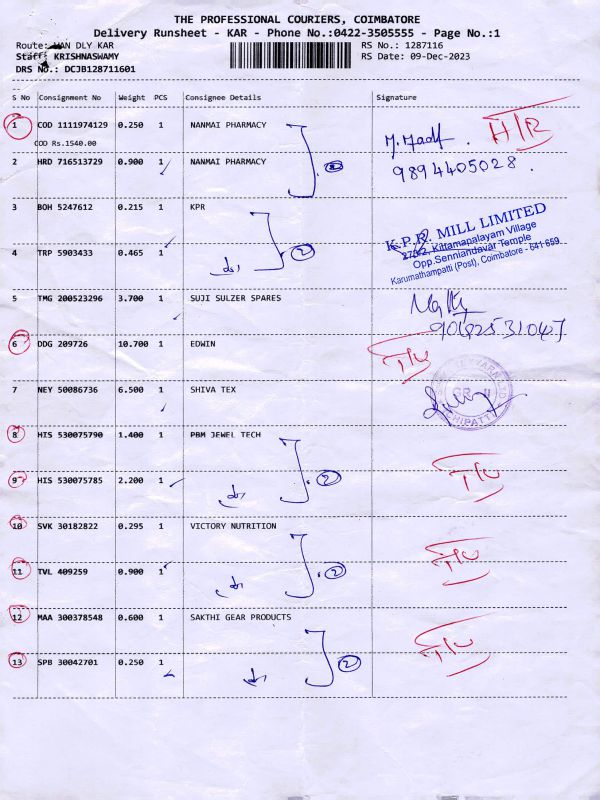 THE PROFESSIONAL COURIERS, COIMBATORE
Delivery Runsheet - KAR - Phone No.:0422-3505555 - Page No.:1
Route: VAN DLY KAR RS No.: 1287116
Staff: KRISHNASWAMY RS Date: 09-Dec-2023
DRS No.: DCJB128711601
S No Consignment No Weight PCS Consignee Details Signature
1 COD 1111974129 0.250 1 NANMAI PHARMACY
COD Rs.1540.00
2 HRD 716513729 0.900 1 NANMAI PHARMACY
9894405028.
3 BOH 5247612 0.215 1 KPR
K.P.R. MILL LIMITED
4 TRP 5903433 0.465 1 2
Kittampalayam Village
Opp.Senniandavar Temple
Karumathampatti (Post), Coimbatore - 641 659
5 TMG 200523296 3.700 1 SUJI SULZER SPARES
6 DDG 209726 10.700 1 EDWIN
7 NEY 50086736 6.500 1 SHIVA TEX
8 HIS 530075790 1.400 1 PBM JEWEL TECH
9 HIS 530075785 2.200 1 2
10 SVK 30182822 0.295 1 VICTORY NUTRITION
11 TVL 409259 0.900 1 2
12 MAA 300378548 0.600 1 SAKTHI GEAR PRODUCTS
13 SPB 30042701 0.250 1 2